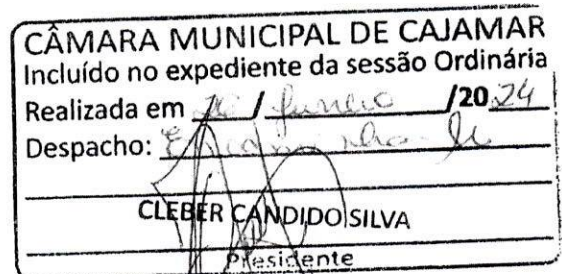 CÂMARA MUNICIPAL DE CAJAMAR
Incluído no expediente da sessão Ordinária
Realizada em / /2024
Despacho: Encaminha-se
CLEBER CANDIDO SILVA
Presidente